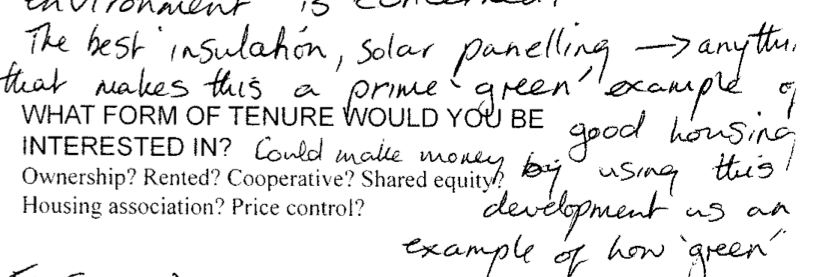 environment is concerned.
The best insulation, solar panelling → anythi
that makes this a prime 'green' example of
WHAT FORM OF TENURE WOULD YOU BE
good housing
INTERESTED IN? Could make money by using this
Ownership? Rented? Cooperative? Shared equity?
Housing association? Price control?
development as an
example of how 'green'